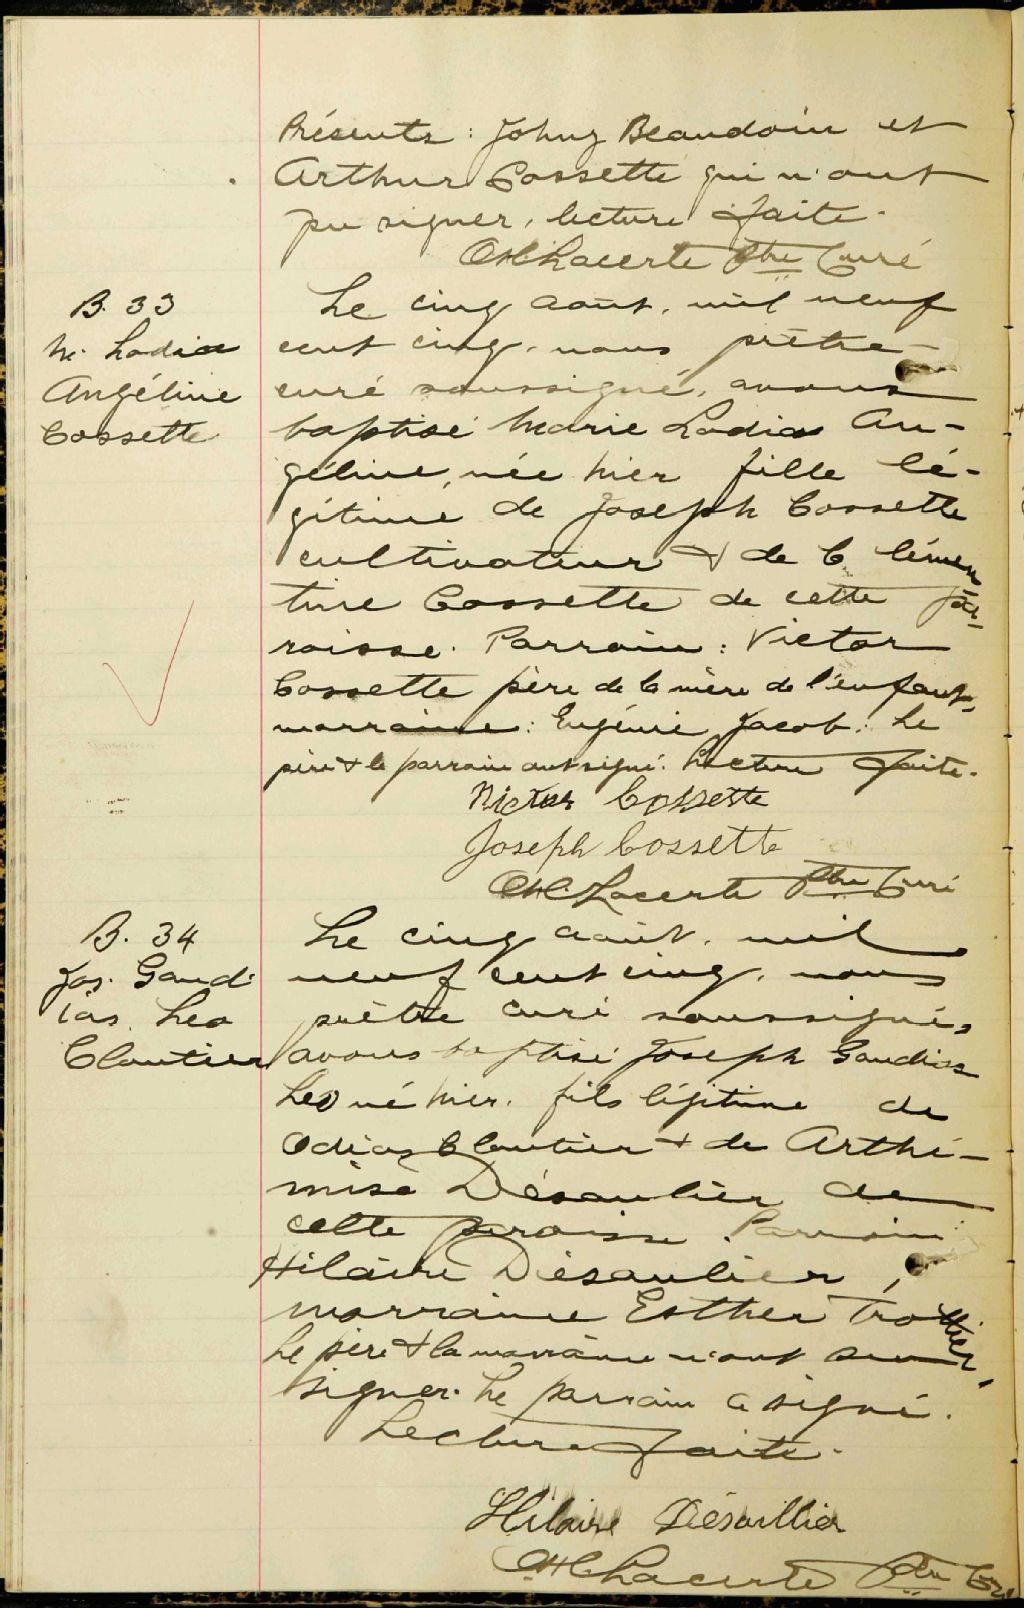 Présents : Johny Beaudoin et
Arthur Cossette qui n'ont
pu signer, lecture faite.
Lacerte Ptre Curé
B. 33
M. Lodia
Angéline
Cossette
Le cinq août, mil neuf
cent cinq, nous prêtre
curé soussigné, avons
baptisé Marie Lodia An-
géline, née hier fille lé-
gitime de Joseph Cossette
cultivateur & de Clémen-
tine Cossette de cette pa-
roisse. Parrain : Victor
Cossette père de la mère de l'enfant,
marraine : Eugénie Jacob. Le
père & le parrain ont signé. Lecture faite.
Victor Cossette
Joseph Cossette
Lacerte Ptre Curé
B. 34
Jos. Gaud-
ias Leo
Cloutier
Le cinq août, mil
neuf cent cinq, nous
prêtre curé soussigné,
avons baptisé Joseph Gaudias
Leo né hier, fils légitime de
Odias Cloutier & de Arthé-
mise Désaulier de
cette paroisse. Parrain
Hilaire Désaulier,
marraine Esther Trottier,
Le père & la marraine n'ont su
signer. Le parrain a signé.
Lecture faite.
Hilaire Désaillier
Lacerte Ptre Curé